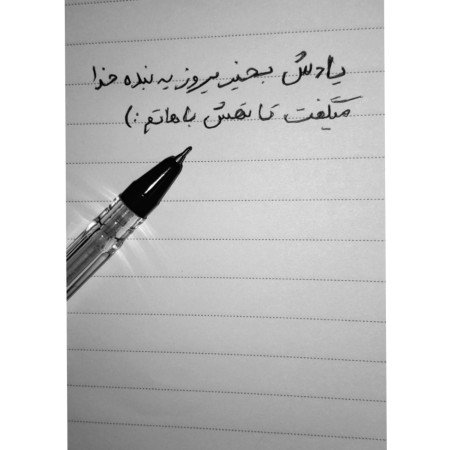 یادش بخیر یروز یه بنده خدا
میگفت تا تهش باهاتم :)